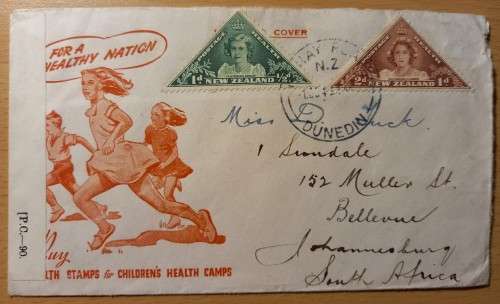 COVER
FOR A
HEALTHY NATION
1d ½d
NEW ZEALAND
2d 1d
NEW ZEALAND
N.Z
DUNEDIN
Miss D
1
152 Muller St.
Bellevue
Johannesburg
South Africa
[P.C.—90.
Buy
LTH STAMPS for CHILDREN'S HEALTH CAMPS